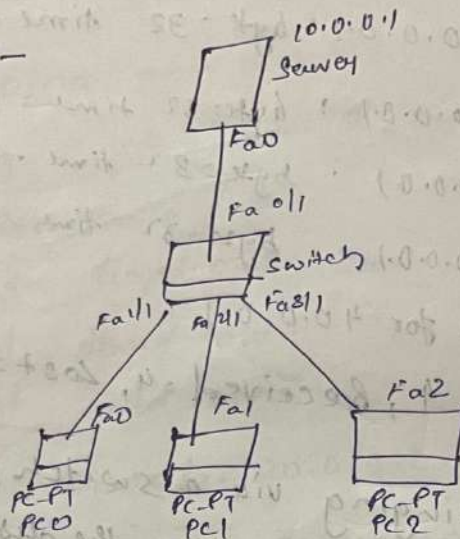 10.0.0.1
Server
Fa0
Fa 0/1
Switch
Fa1/1
Fa2/1
Fa3/1
Fa0
Fa1
Fa2
PC-PT
PC0
PC-PT
PC1
PC-PT
PC2